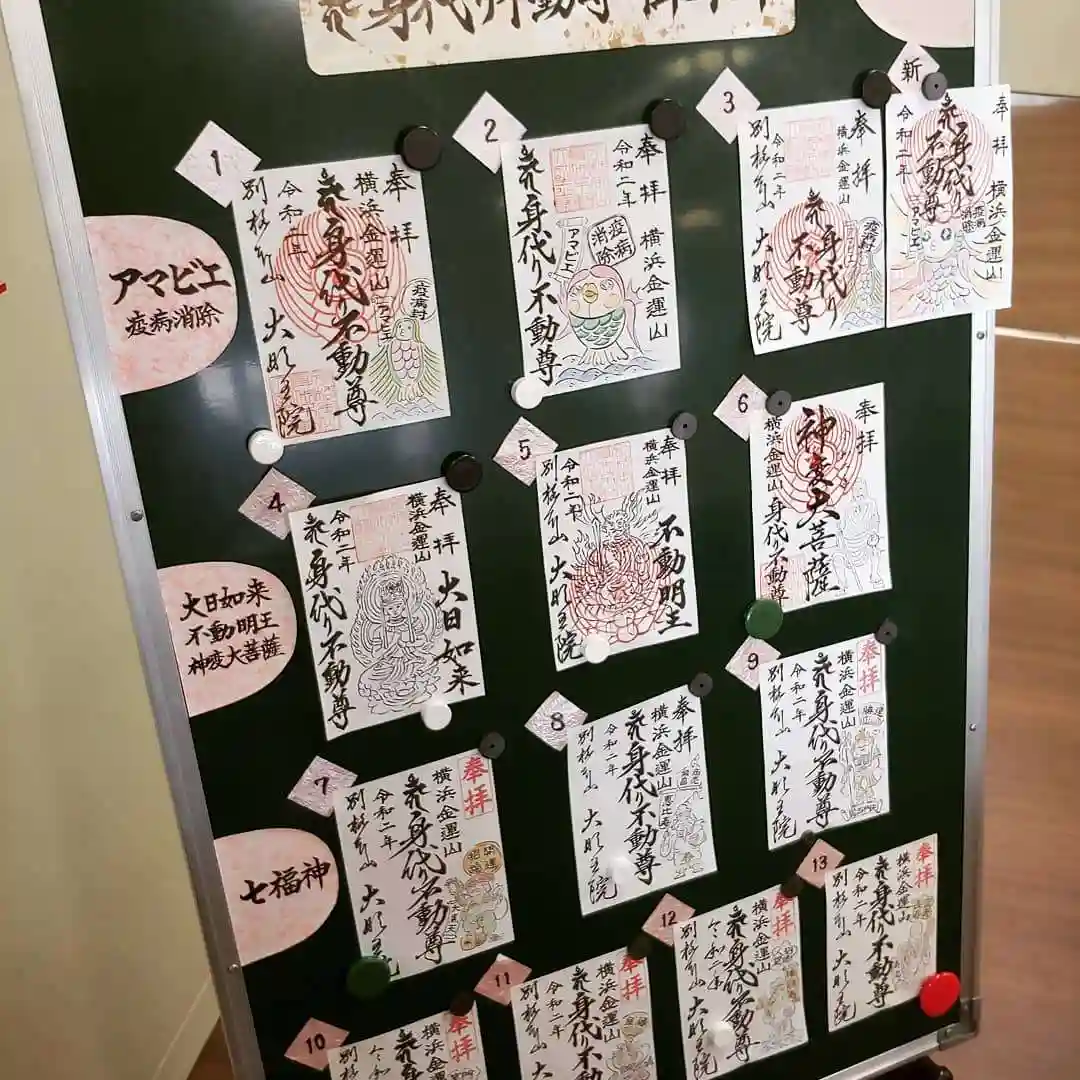 身代り不動尊
アマビエ
疫病消除
1
奉拝
横浜金運山
身代り不動尊
令和二年
別格本山
大明王院
疫病封
アマビエ
2
奉拝
横浜金運山
令和二年
疫病
消除
アマビエ
身代り不動尊
3
奉拝
横浜金運山
身代り
不動尊
令和二年
別格本山
大明王院
疫病封
アマビエ
新
奉拝
横浜金運山
身代り
不動尊
令和二年
疫病
消除
アマビエ
大日如来
不動明王
神変大菩薩
4
奉拝
大日如来
横浜金運山
令和二年
身代り不動尊
5
奉拝
不動明王
横浜金運山
令和二年
別格本山
大明王院
6
奉拝
神変大菩薩
横浜金運山
身代り不動尊
七福神
7
奉拝
横浜金運山
身代り不動尊
令和二年
別格本山
大明王院
開運
招福
8
奉拝
横浜金運山
身代り不動尊
令和二年
別格本山
大明王院
恵比寿
9
奉拝
横浜金運山
身代り不動尊
令和二年
別格本山
大明王院
10
奉拝
横浜
身
令和二
別格本山
11
奉拝
横浜金運山
身代り不動
令和二年
別格本山
大
12
奉拝
横浜金運山
身代り不動尊
令和二年
別格本山
大明王院
13
奉拝
横浜金運山
身代り不動尊
令和二年
別格本山
大明王院